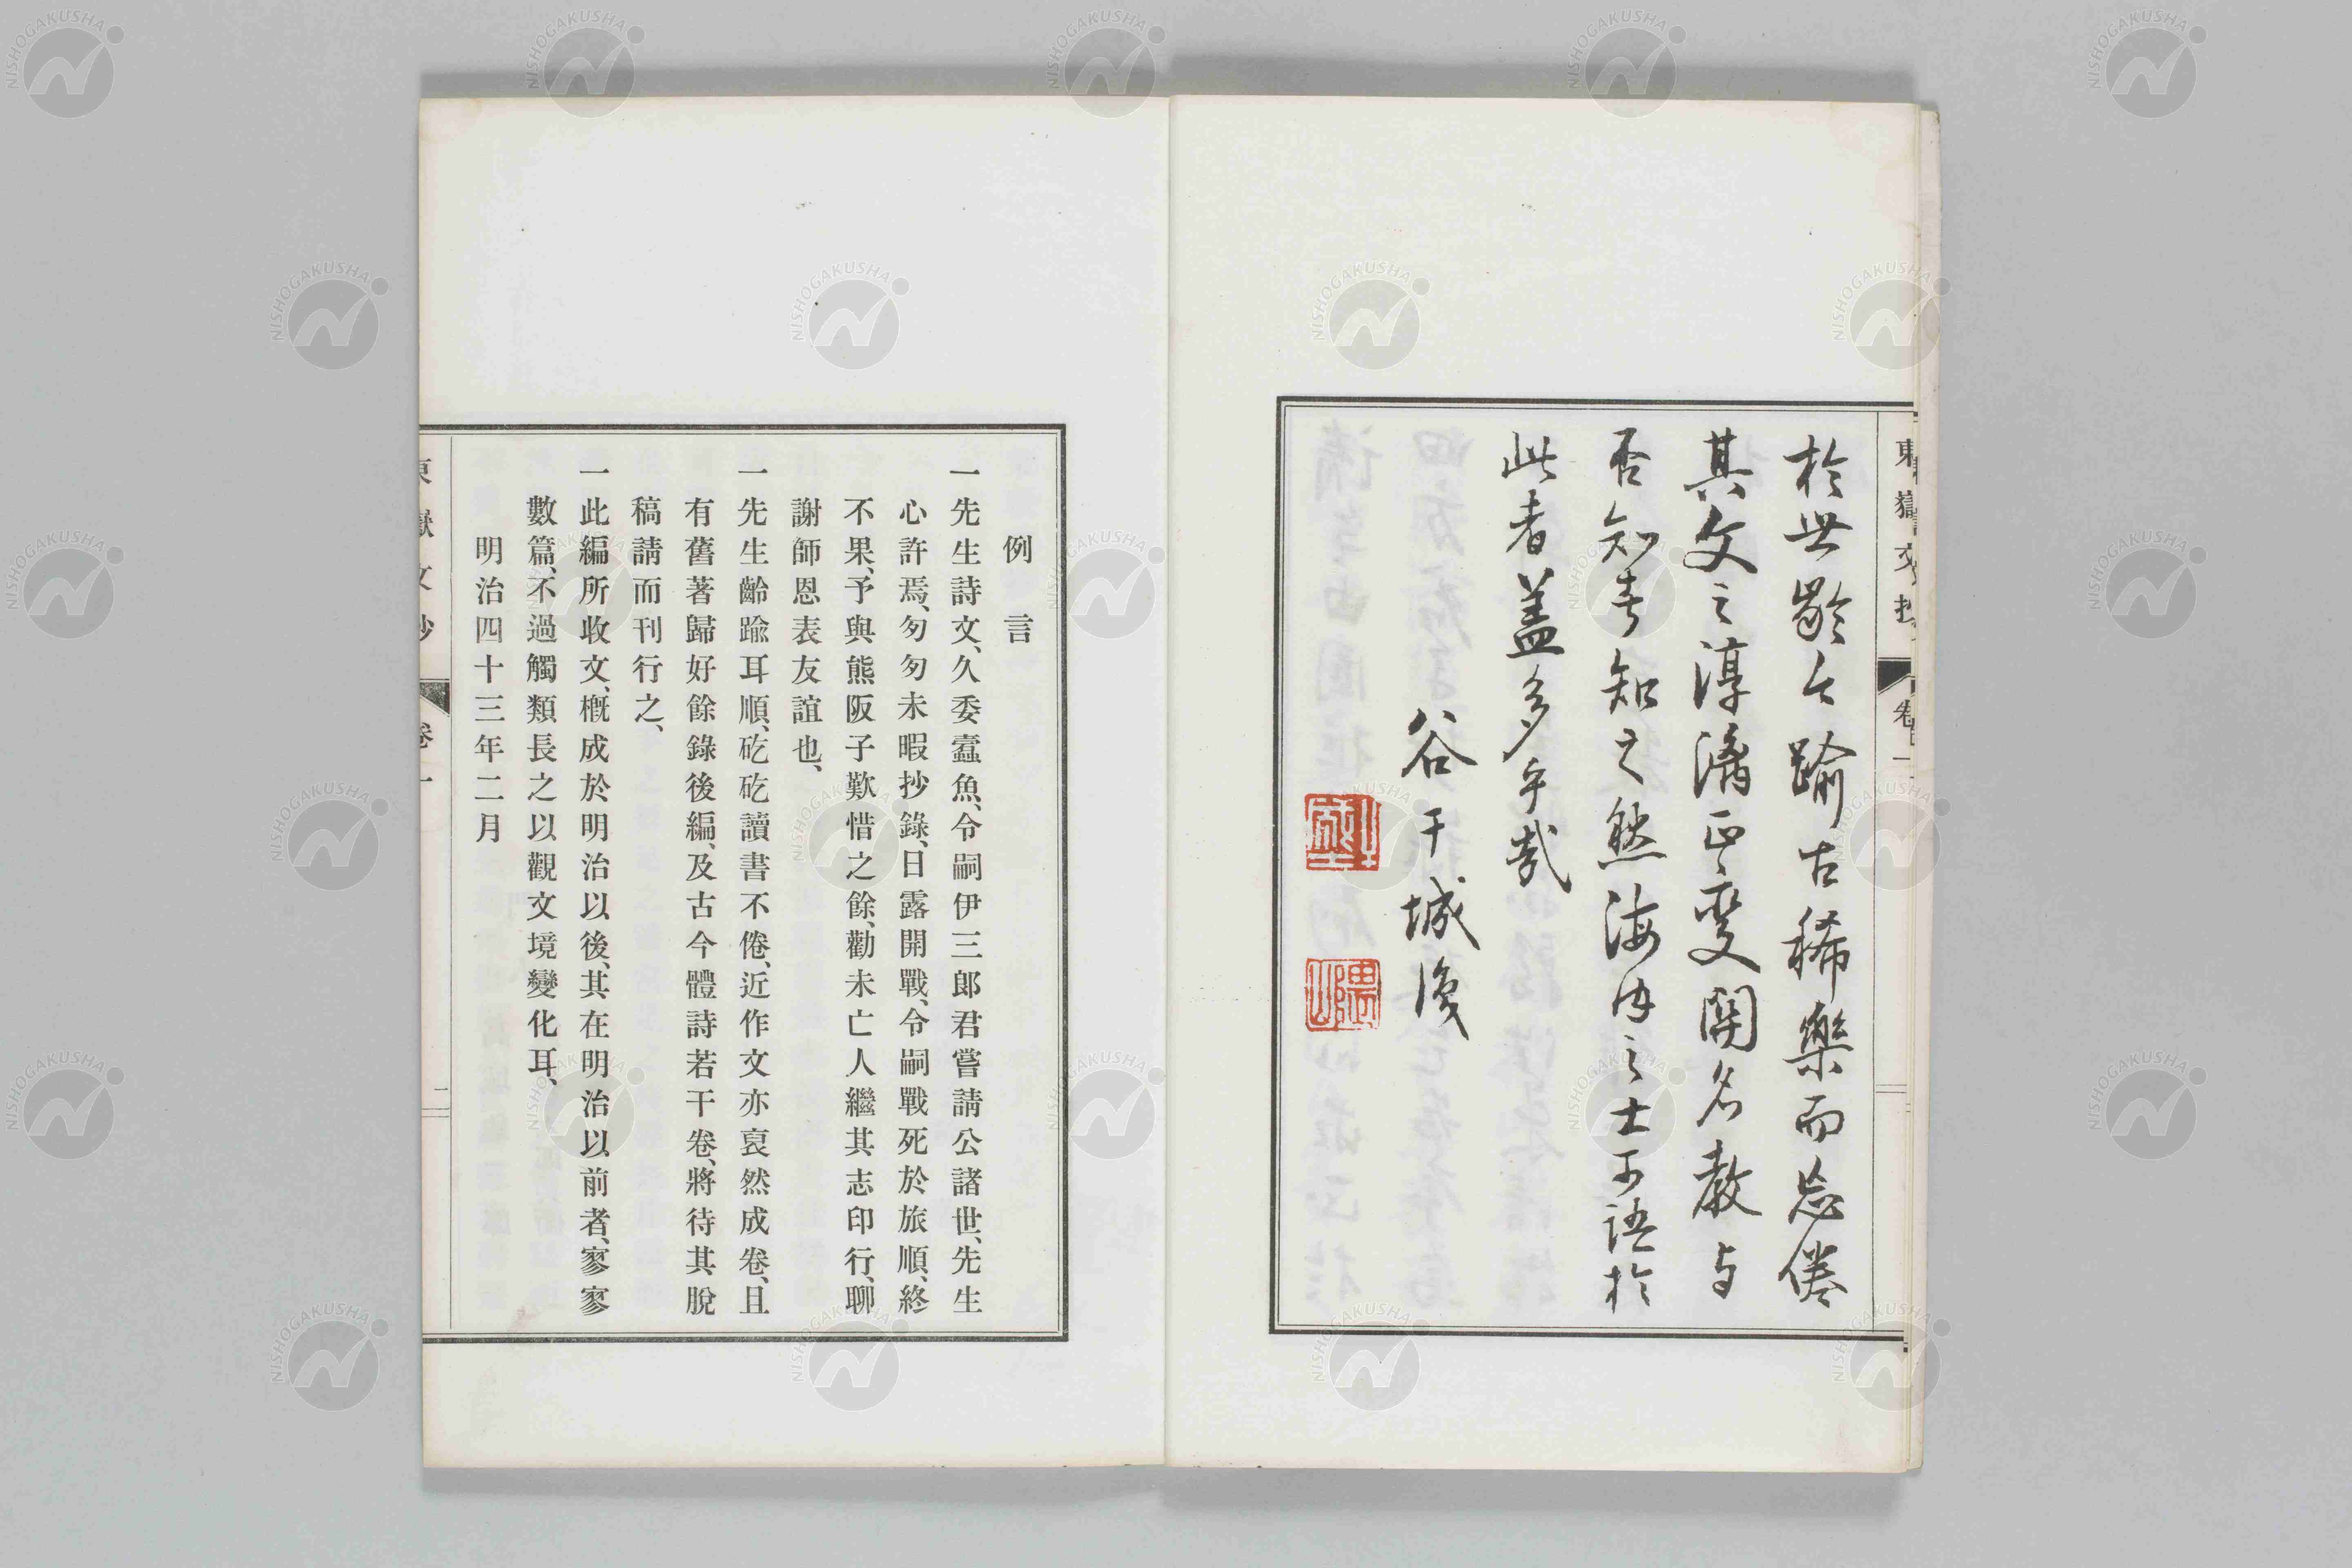 東嶽文抄
卷一
於世齡已踰古稀樂而忘倦
其文之淳漓正變関名教与
否知者知之然海内之士可語於
此者蓋多乎哉
谷干城後
例言
一先生詩文、久委蠹魚、令嗣伊三郞君嘗請公諸世、先生
心許焉、匆匆未暇抄錄、日露開戰、令嗣戰死於旅順、終
不果、予與熊阪子歎惜之餘、勸未亡人繼其志印行、聊
謝師恩表友誼也、
一先生齡踰耳順、矻矻讀書不倦、近作文亦裒然成卷、且
有舊著歸好餘錄後編、及古今體詩若干卷、將待其脫
稿請而刊行之、
一此編所收文、槪成於明治以後、其在明治以前者、寥寥
數篇、不過觸類長之以觀文境變化耳、
明治四十三年二月
東嶽文抄
卷一
一
NISHOGAKUSHA